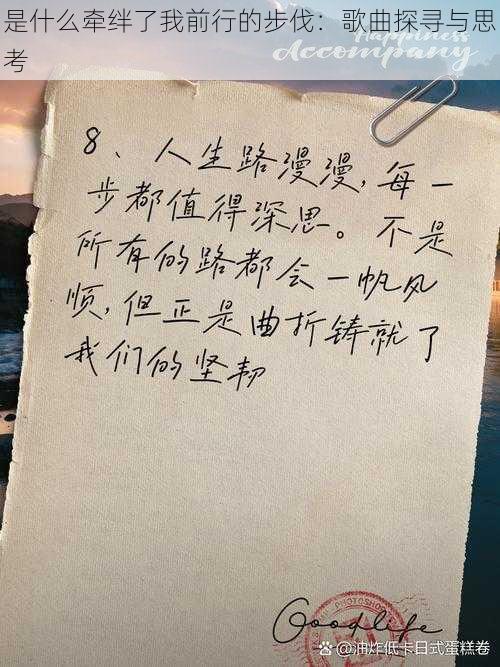 是什么牵绊了我前行的步伐：歌曲探寻与思
考
Happiness
Accompany
8、人生路漫漫，每一
步都值得深思。不是
所有的路都会一帆风
顺，但正是曲折铸就了
我们的坚韧
PHOTOSHOP
Goodlife
@油炸低卡日式蛋糕卷